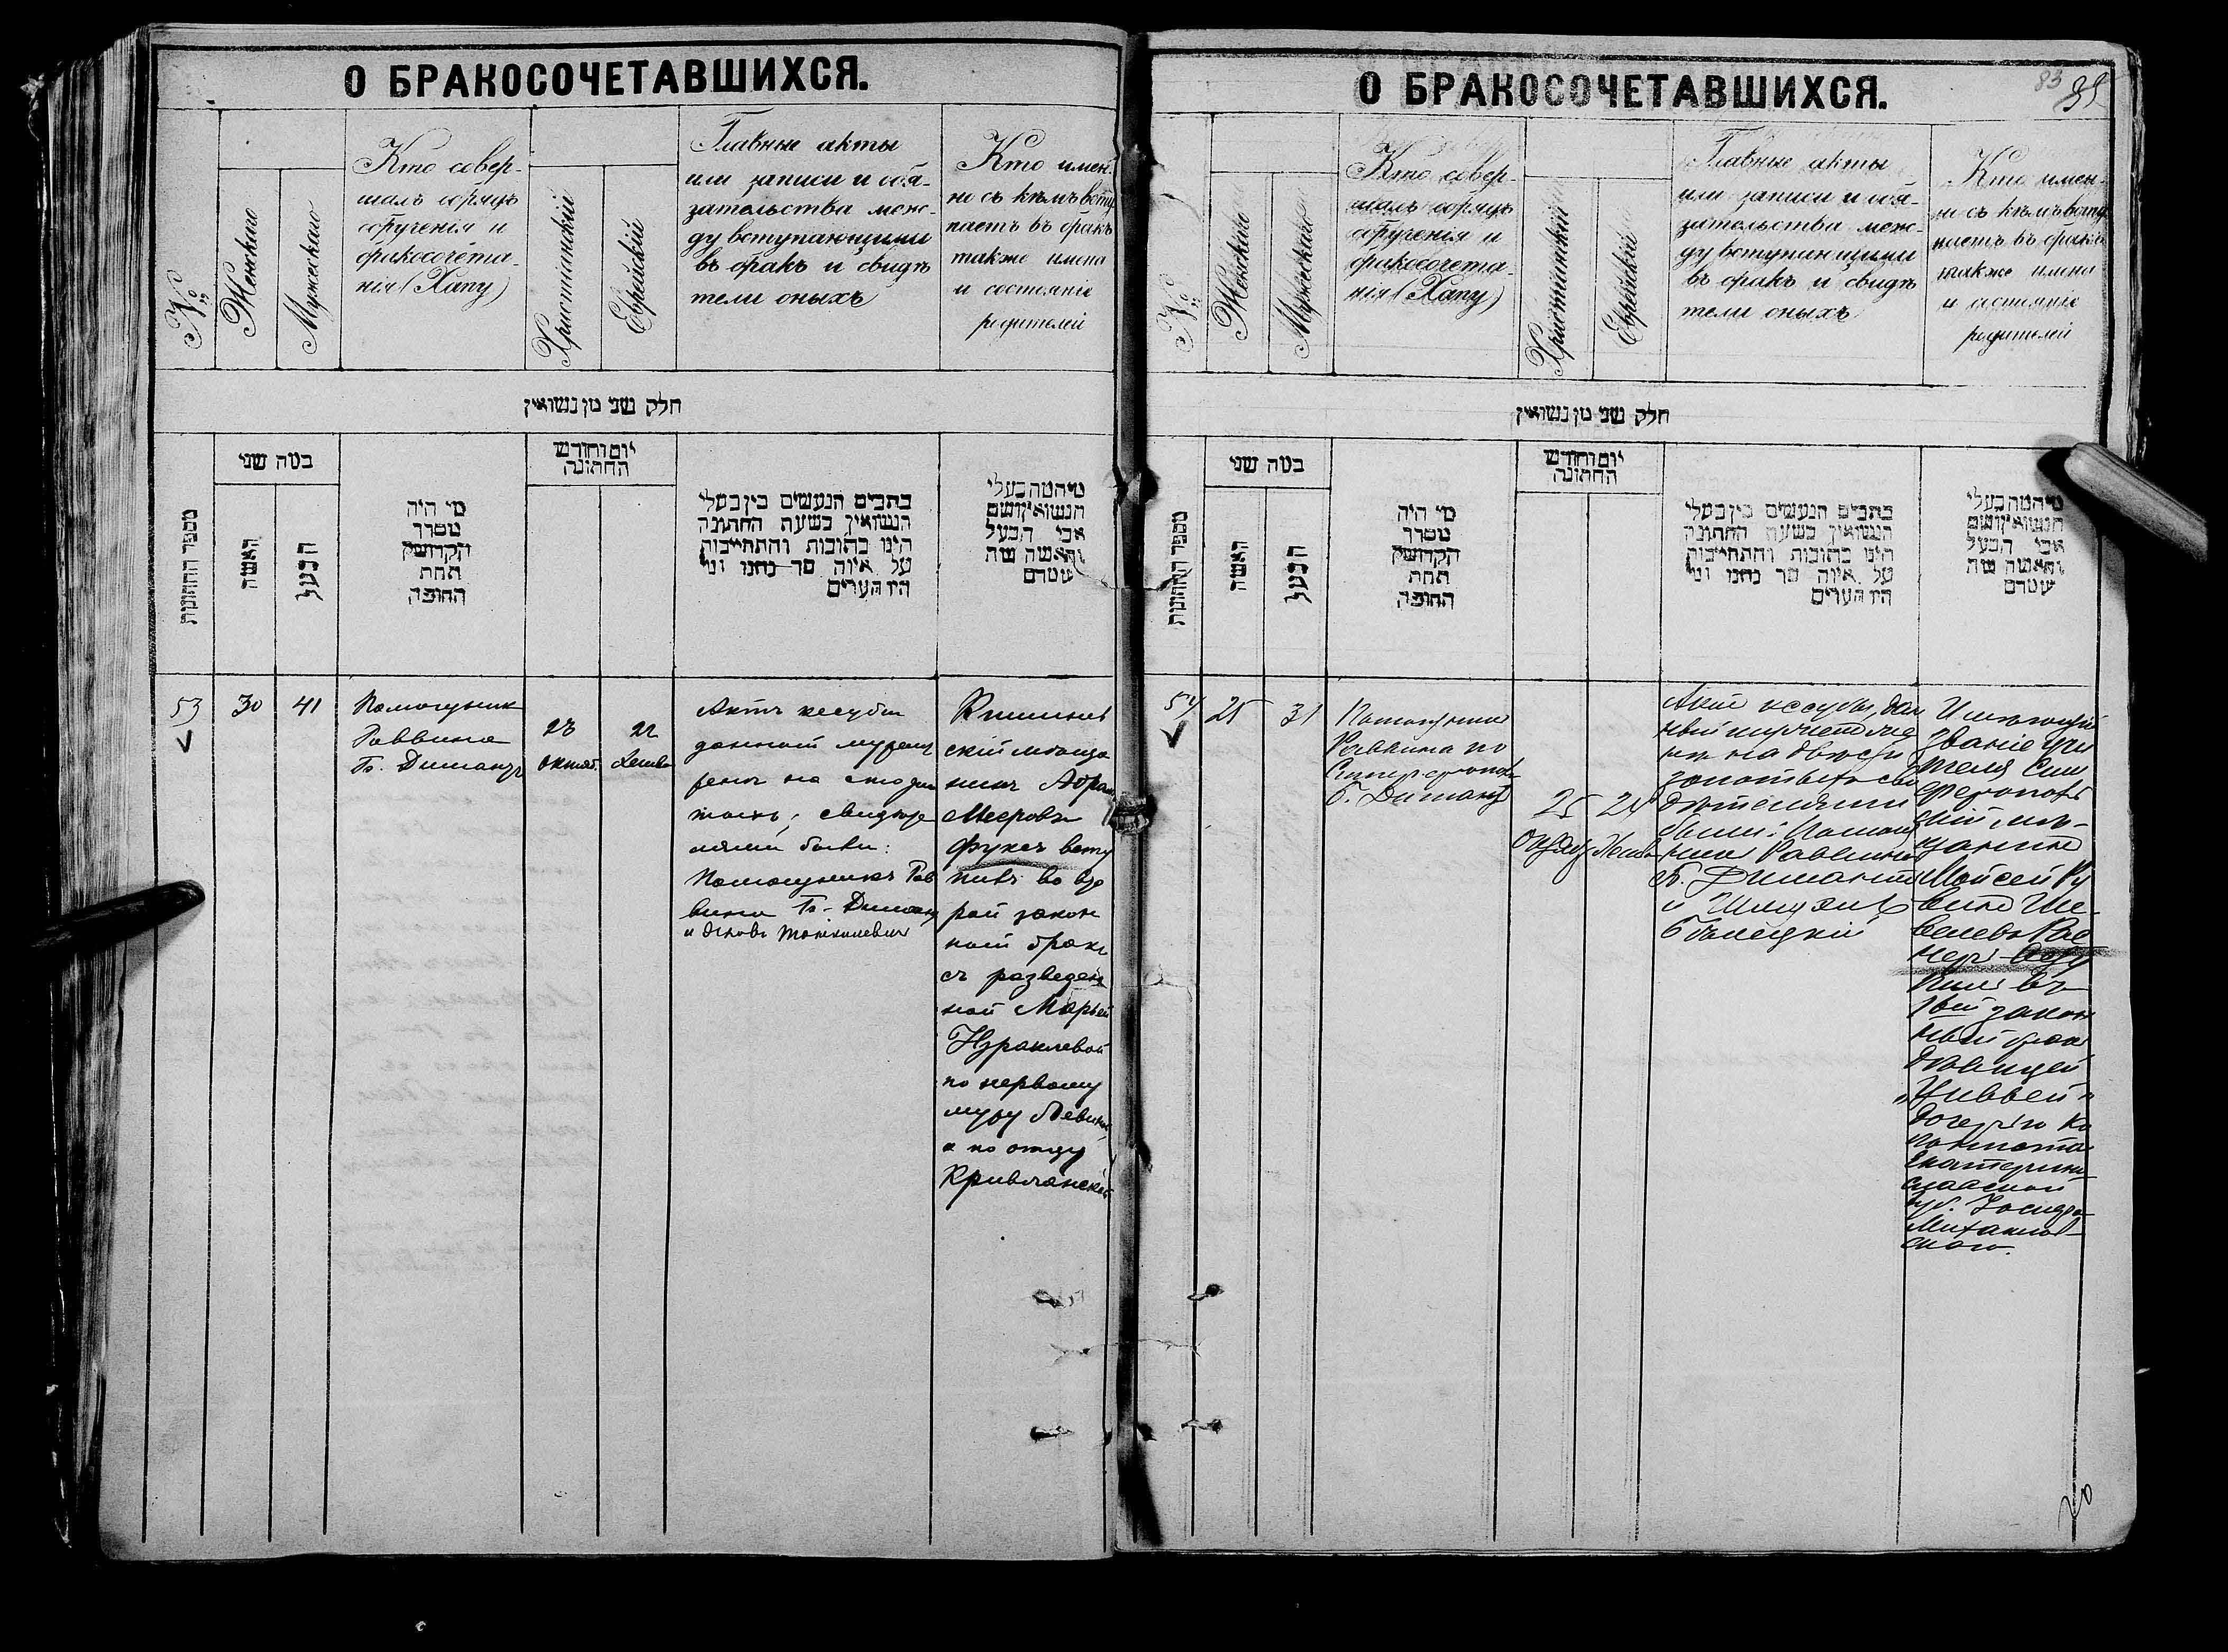 О БРАКОСОЧЕТАВШИХСЯ.
№
Женскаго
Мужескаго
Кто совер-
шалъ обрядъ
обрученія и
бракосочета-
нія (Хапу)
Христіанскій
Еврейскій
Главные акты
или записи и обя-
зательства меж-
ду вступающими
въ бракъ и свидѣ
тели оныхъ
Кто имен-
но съ кѣмъ всту
паетъ въ бракъ
также имена
и состояніе
родителей
חלק שני מן נשואין
מספר החתונות
כמה שני
האשה
הבעל
מי היה
מסדר
הקדושין
תחת
החופה
יום וחודש
החתונה
כתבים הנעשים בין בעלי
הנשואין בשעת החתונה
היינו כתובות והתחייבות
על איזה סך נתנו ומי
היו העדים
מי המה בעלי
הנשואין ושם
אבי הבעל
והאשה מה
שמדם
53
30
41
Помощник
Раввина
Б. Димантъ
23
октяб.
22
Хешва
Актъ кесубы
данный мужем
жене на сто зл
тыхъ; свидѣте
лями были:
Помощникъ Рав
вина Б. Димантъ
и
Кишинев
скій мѣща
нинъ Абрам
Мееровъ
Фуксъ всту
пивъ во вто
рой закон
ный бракъ
съ разведен
ной Марьей
Израилевой
по первому
мужу Левина,
а по отцу
Кривлянской
О БРАКОСОЧЕТАВШИХСЯ.
83
№
Женскаго
Мужескаго
Кто совер-
шалъ обрядъ
обрученія и
бракосочета-
нія (Хапу)
Христіанскій
Еврейскій
Главные акты
или записи и обя-
зательства меж-
ду вступающими
въ бракъ и свидѣ
тели оныхъ
Кто имен-
но съ кѣмъ всту
паетъ въ бракъ
также имена
и состояніе
родителей
חלק שני מן נשואין
מספר החתונות
כמה שני
האשה
הבעל
מי היה
מסדר
הקדושין
תחת
החופה
יום וחודש
החתונה
כתבים הנעשים בין בעלי
הנשואין בשעת החתונה
היינו כתובות והתחייבות
על איזה סך נתנו ומי
היו העדים
מי המה בעלי
הנשואין ושם
אבי הבעל
והאשה מה
שמדם
54
25
31
Помощник
Раввина по
Симферополю
Б. Димантъ
25
Октяб
24
Хешв
Актъ кесубы, дан
ный мужемъ же
нѣ на двѣсти
золотыхъ сви
дѣтелями
были: Помощ
никъ Раввина
Б. Димантъ
и
Бѣлецкій
Имѣющій
званіе учи
теля Сим
феропольс
кій мѣ-
щанинъ
Мойсей Ру
винъ Ше-
велевъ
всту
пилъ въ
1вый закон
ный бракъ
дѣвицей
„Риввей“
дочерью ко
лониста
Екатерино
славской
губ.
Михайлов-
скаго.
20